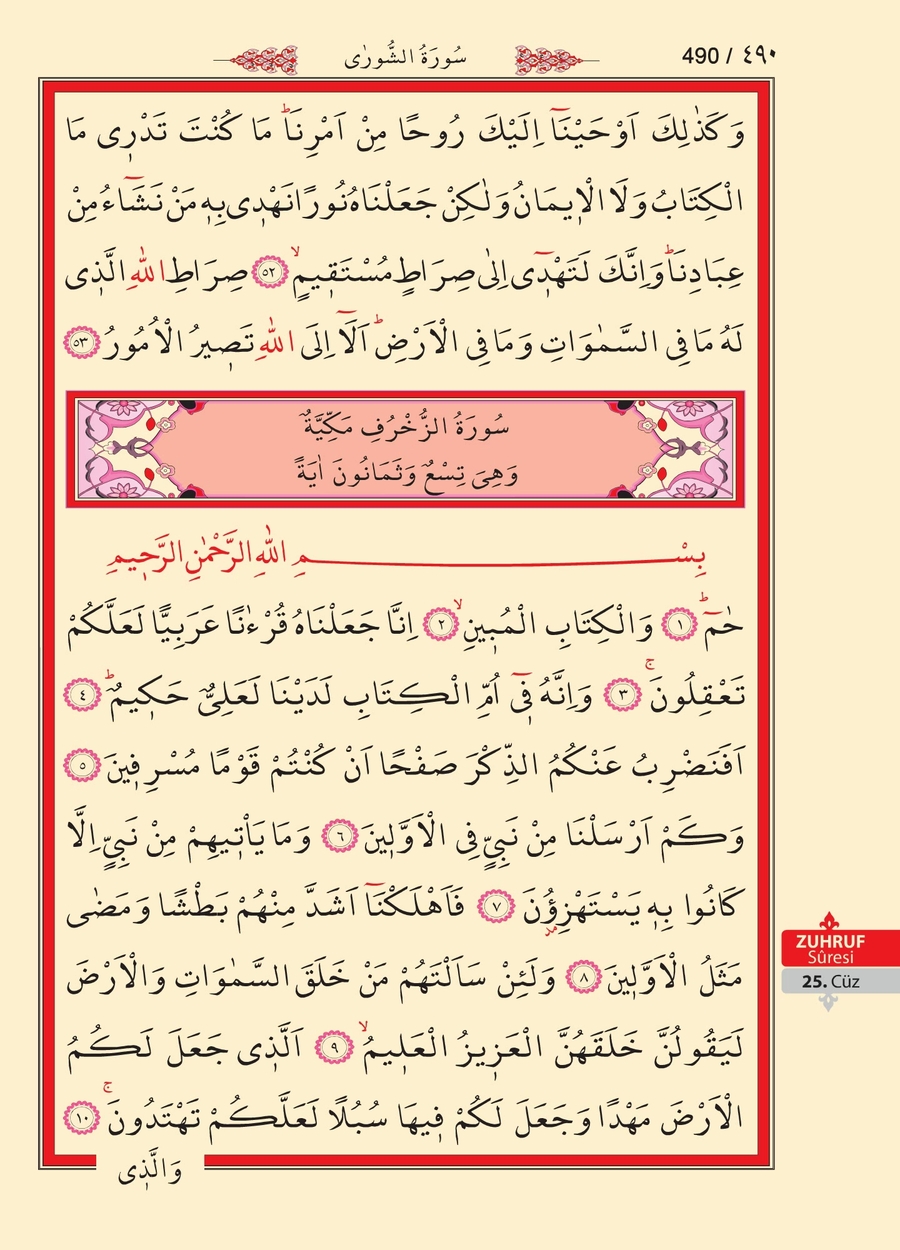 سُورَةُ الشُّورٰى
490 / ٤٩٠
وَكَذٰلِكَ اَوْحَيْنَٓا اِلَيْكَ رُوحًا مِنْ اَمْرِنَاۜ مَا كُنْتَ تَدْر۪ى مَا
الْكِتَابُ وَلَا الْا۪يمَانُ وَلٰكِنْ جَعَلْنَاهُ نُورًا نَهْد۪ى بِه۪ مَنْ نَشَٓاءُ مِنْ
عِبَادِنَاۜ وَاِنَّكَ لَتَهْد۪ٓى اِلٰى صِرَاطٍ مُسْتَق۪يمٍۙ ﴿٥٢﴾ صِرَاطِ اللّٰهِ الَّذ۪ى
لَهُ مَا فِى السَّمٰوَاتِ وَمَا فِى الْاَرْضِۜ اَلَٓا اِلَى اللّٰهِ تَص۪يرُ الْاُمُورُ ﴿٥٣﴾
سُورَةُ الزُّخْرُفِ مَكِّيَّةٌ
وَهِىَ تِسْعٌ وَثَمَانُونَ اٰيَةً
بِسْمِ اللّٰهِ الرَّحْمٰنِ الرَّح۪يمِ
حٰمٓۜ ﴿١﴾ وَالْكِتَابِ الْمُب۪ينِۙ ﴿٢﴾ اِنَّا جَعَلْنَاهُ قُرْءٰنًا عَرَبِيًّا لَعَلَّكُمْ
تَعْقِلُونَۚ ﴿٣﴾ وَاِنَّهُ ف۪ٓى اُمِّ الْكِتَابِ لَدَيْنَا لَعَلِىٌّ حَك۪يمٌۜ ﴿٤﴾
اَفَنَضْرِبُ عَنْكُمُ الذِّكْرَ صَفْحًا اَنْ كُنْتُمْ قَوْمًا مُسْرِف۪ينَ ﴿٥﴾
وَكَمْ اَرْسَلْنَا مِنْ نَبِىٍّ فِى الْاَوَّل۪ينَ ﴿٦﴾ وَمَا يَاْت۪يهِمْ مِنْ نَبِىٍّ اِلَّا
كَانُوا بِه۪ يَسْتَهْزِؤُ۫نَ ﴿٧﴾ فَاَهْلَكْنَٓا اَشَدَّ مِنْهُمْ بَطْشًا وَمَضٰى
مَثَلُ الْاَوَّل۪ينَ ﴿٨﴾ وَلَئِنْ سَاَلْتَهُمْ مَنْ خَلَقَ السَّمٰوَاتِ وَالْاَرْضَ
لَيَقُولُنَّ خَلَقَهُنَّ الْعَز۪يزُ الْعَل۪يمُۙ ﴿٩﴾ اَلَّذ۪ى جَعَلَ لَكُمُ
الْاَرْضَ مَهْدًا وَجَعَلَ لَكُمْ ف۪يهَا سُبُلًا لَعَلَّكُمْ تَهْتَدُونَۚ ﴿١٠﴾
وَالَّذ۪ى
ZUHRUF
Sûresi
25. Cüz